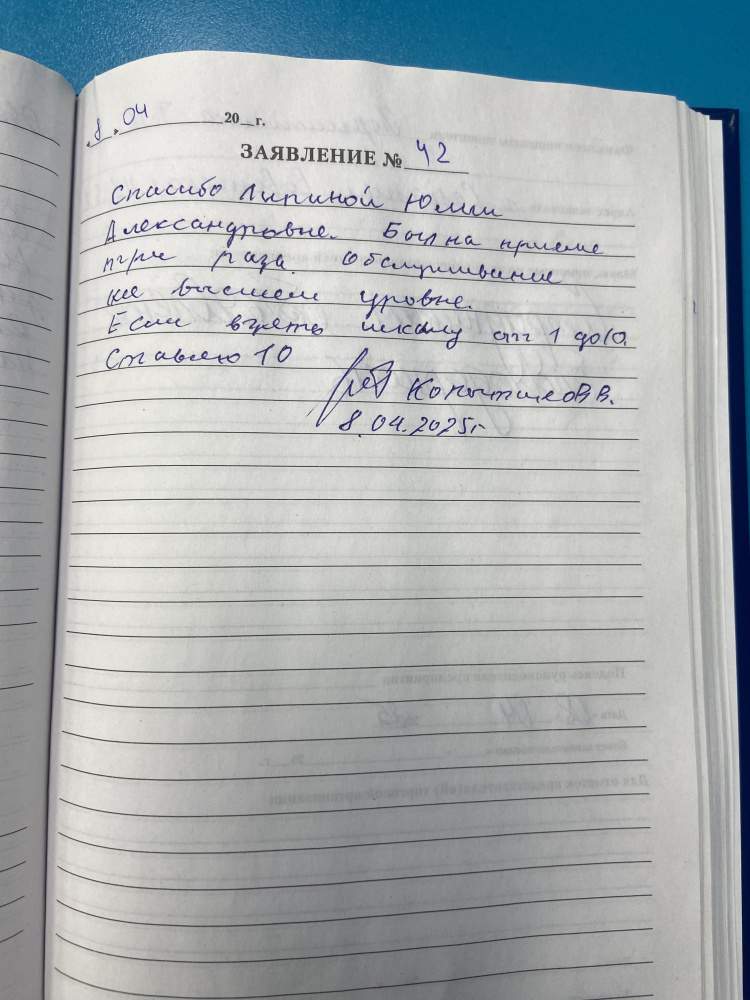 8. 04 20__г.
ЗАЯВЛЕНИЕ № 42
Спасибо Липиной Юлии
Александровне. Был на приеме
три раза. Обслуживание
на высшем уровне.
Если взять шкалу от 1 до 10.
Ставлю 10
В.В.
8.04.2025г